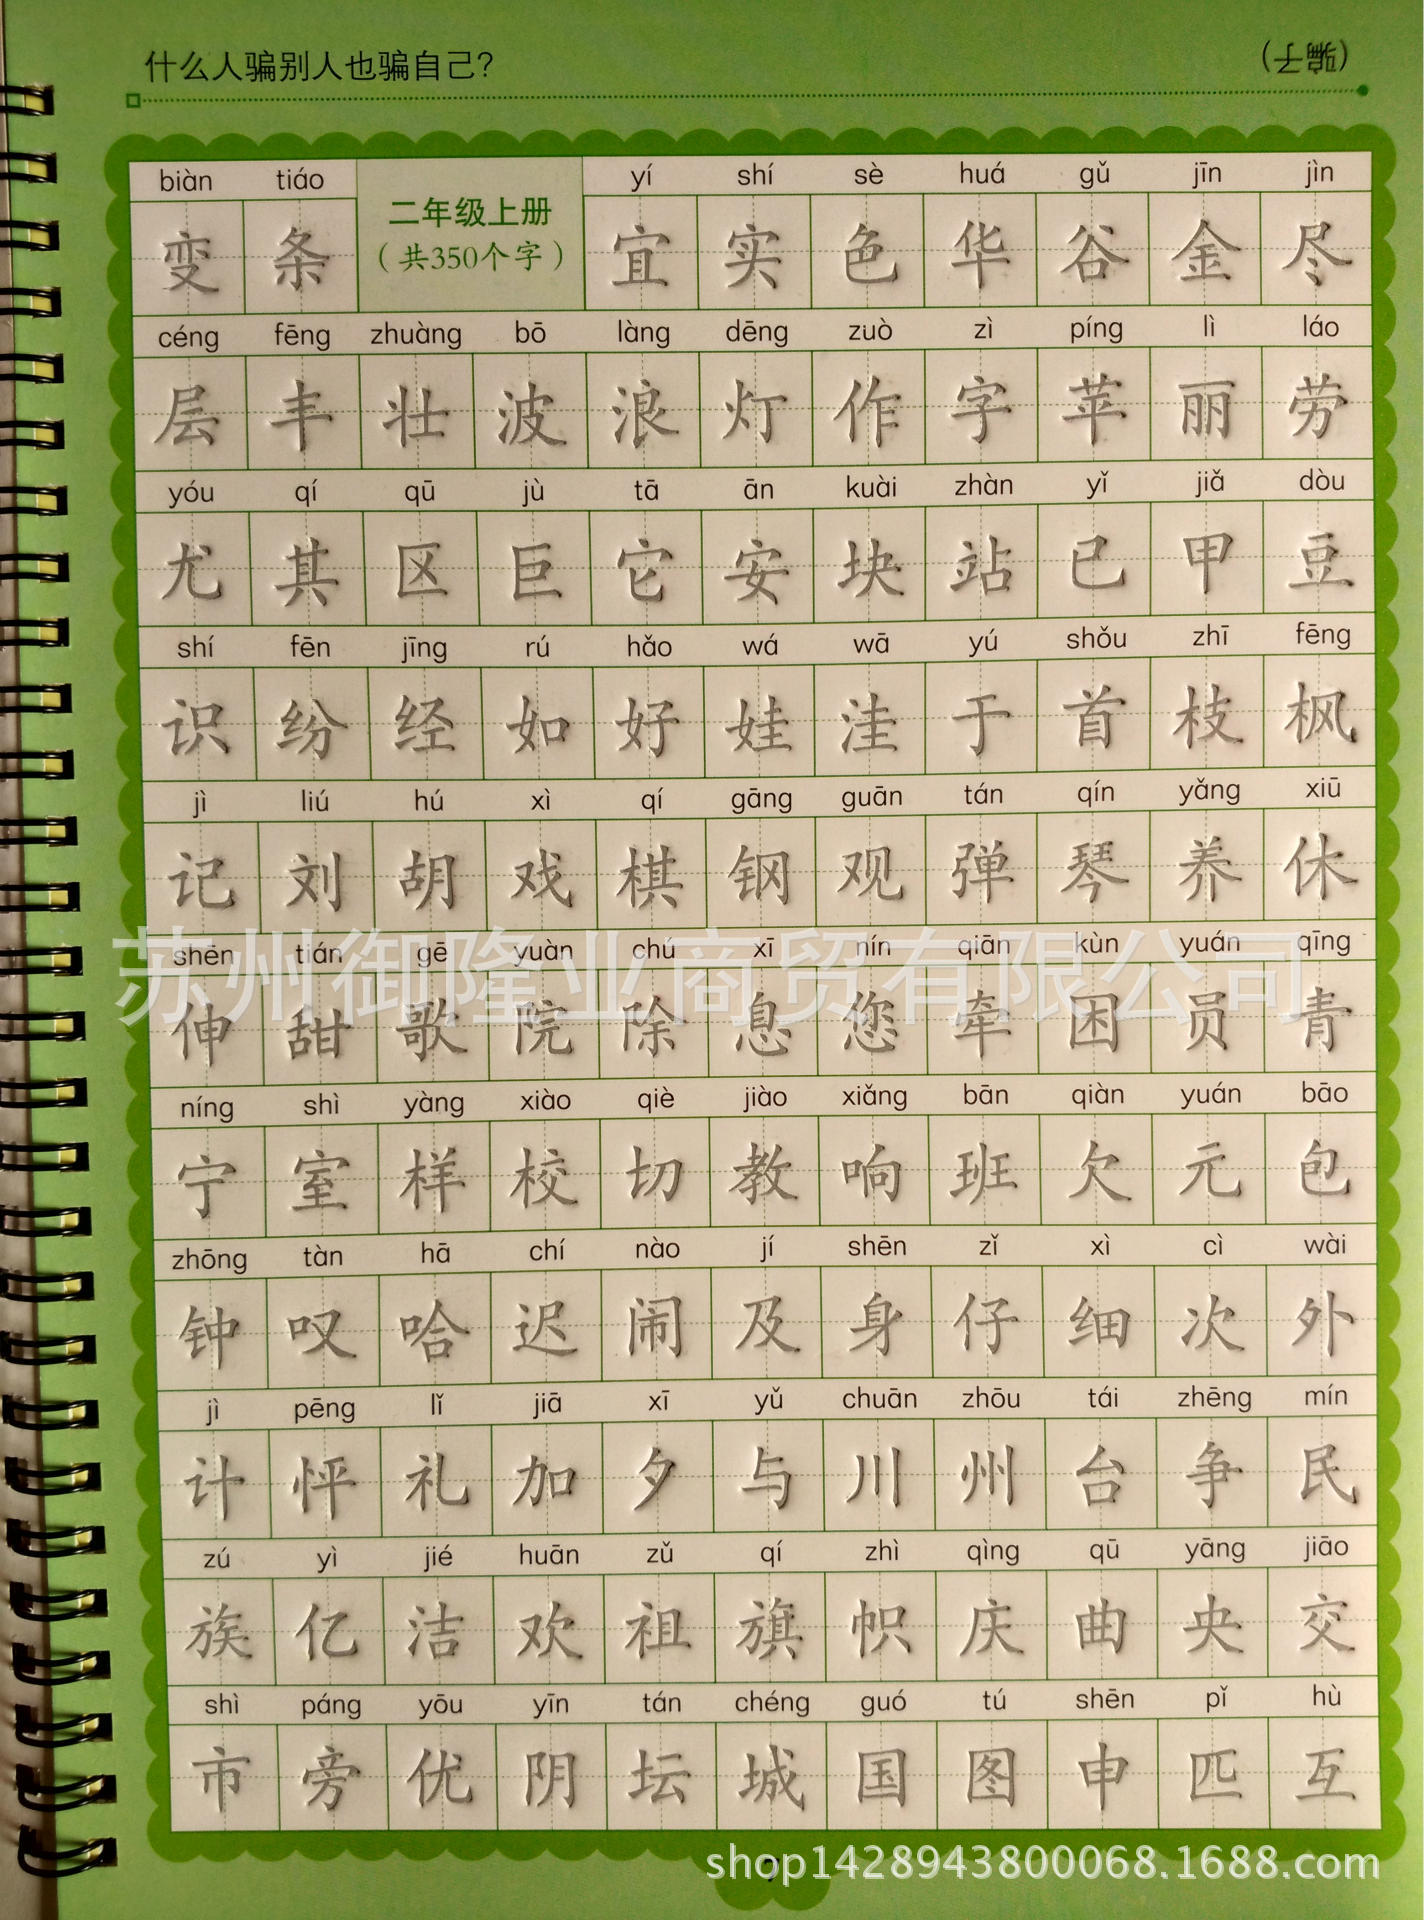 什么人骗别人也骗自己?
(骗子)
biàn tiáo yí shí sè huá gǔ jīn jìn
二年级上册
(共350个字)
变 条 宜 实 色 华 谷 金 尽
céng fēng zhuàng bō làng dēng zuò zì píng lì láo
层 丰 壮 波 浪 灯 作 字 苹 丽 劳
yóu qí qū jù tā ān kuài zhàn yǐ jiǎ dòu
尤 其 区 巨 它 安 块 站 已 甲 豆
shí fēn jīng rú hǎo wá wā yú shǒu zhī fēng
识 纷 经 如 好 娃 洼 于 首 枝 枫
jì liú hú xì qí gāng guān tán qín yǎng xiū
记 刘 胡 戏 棋 钢 观 弹 琴 养 休
苏州御隆业商贸有限公司
shēn tián gē yuàn chú xī nín qiān kùn yuán qīng
伸 甜 歌 院 除 息 您 牵 困 员 青
níng shì yàng xiào qiè jiào xiǎng bān qiàn yuán bāo
宁 室 样 校 切 教 响 班 欠 元 包
zhōng tàn hā chí nào jí shēn zǐ xì cì wài
钟 叹 哈 迟 闹 及 身 仔 细 次 外
jì pēng lǐ jiā xī yǔ chuān zhōu tái zhēng mín
计 怦 礼 加 夕 与 川 州 台 争 民
zú yì jié huān zǔ qí zhì qìng qū yāng jiāo
族 亿 洁 欢 祖 旗 帜 庆 曲 央 交
shì páng yōu yīn tán chéng guó tú shēn pǐ hù
市 旁 优 阴 坛 城 国 图 申 匹 互
7
shop1428943800068.1688.com